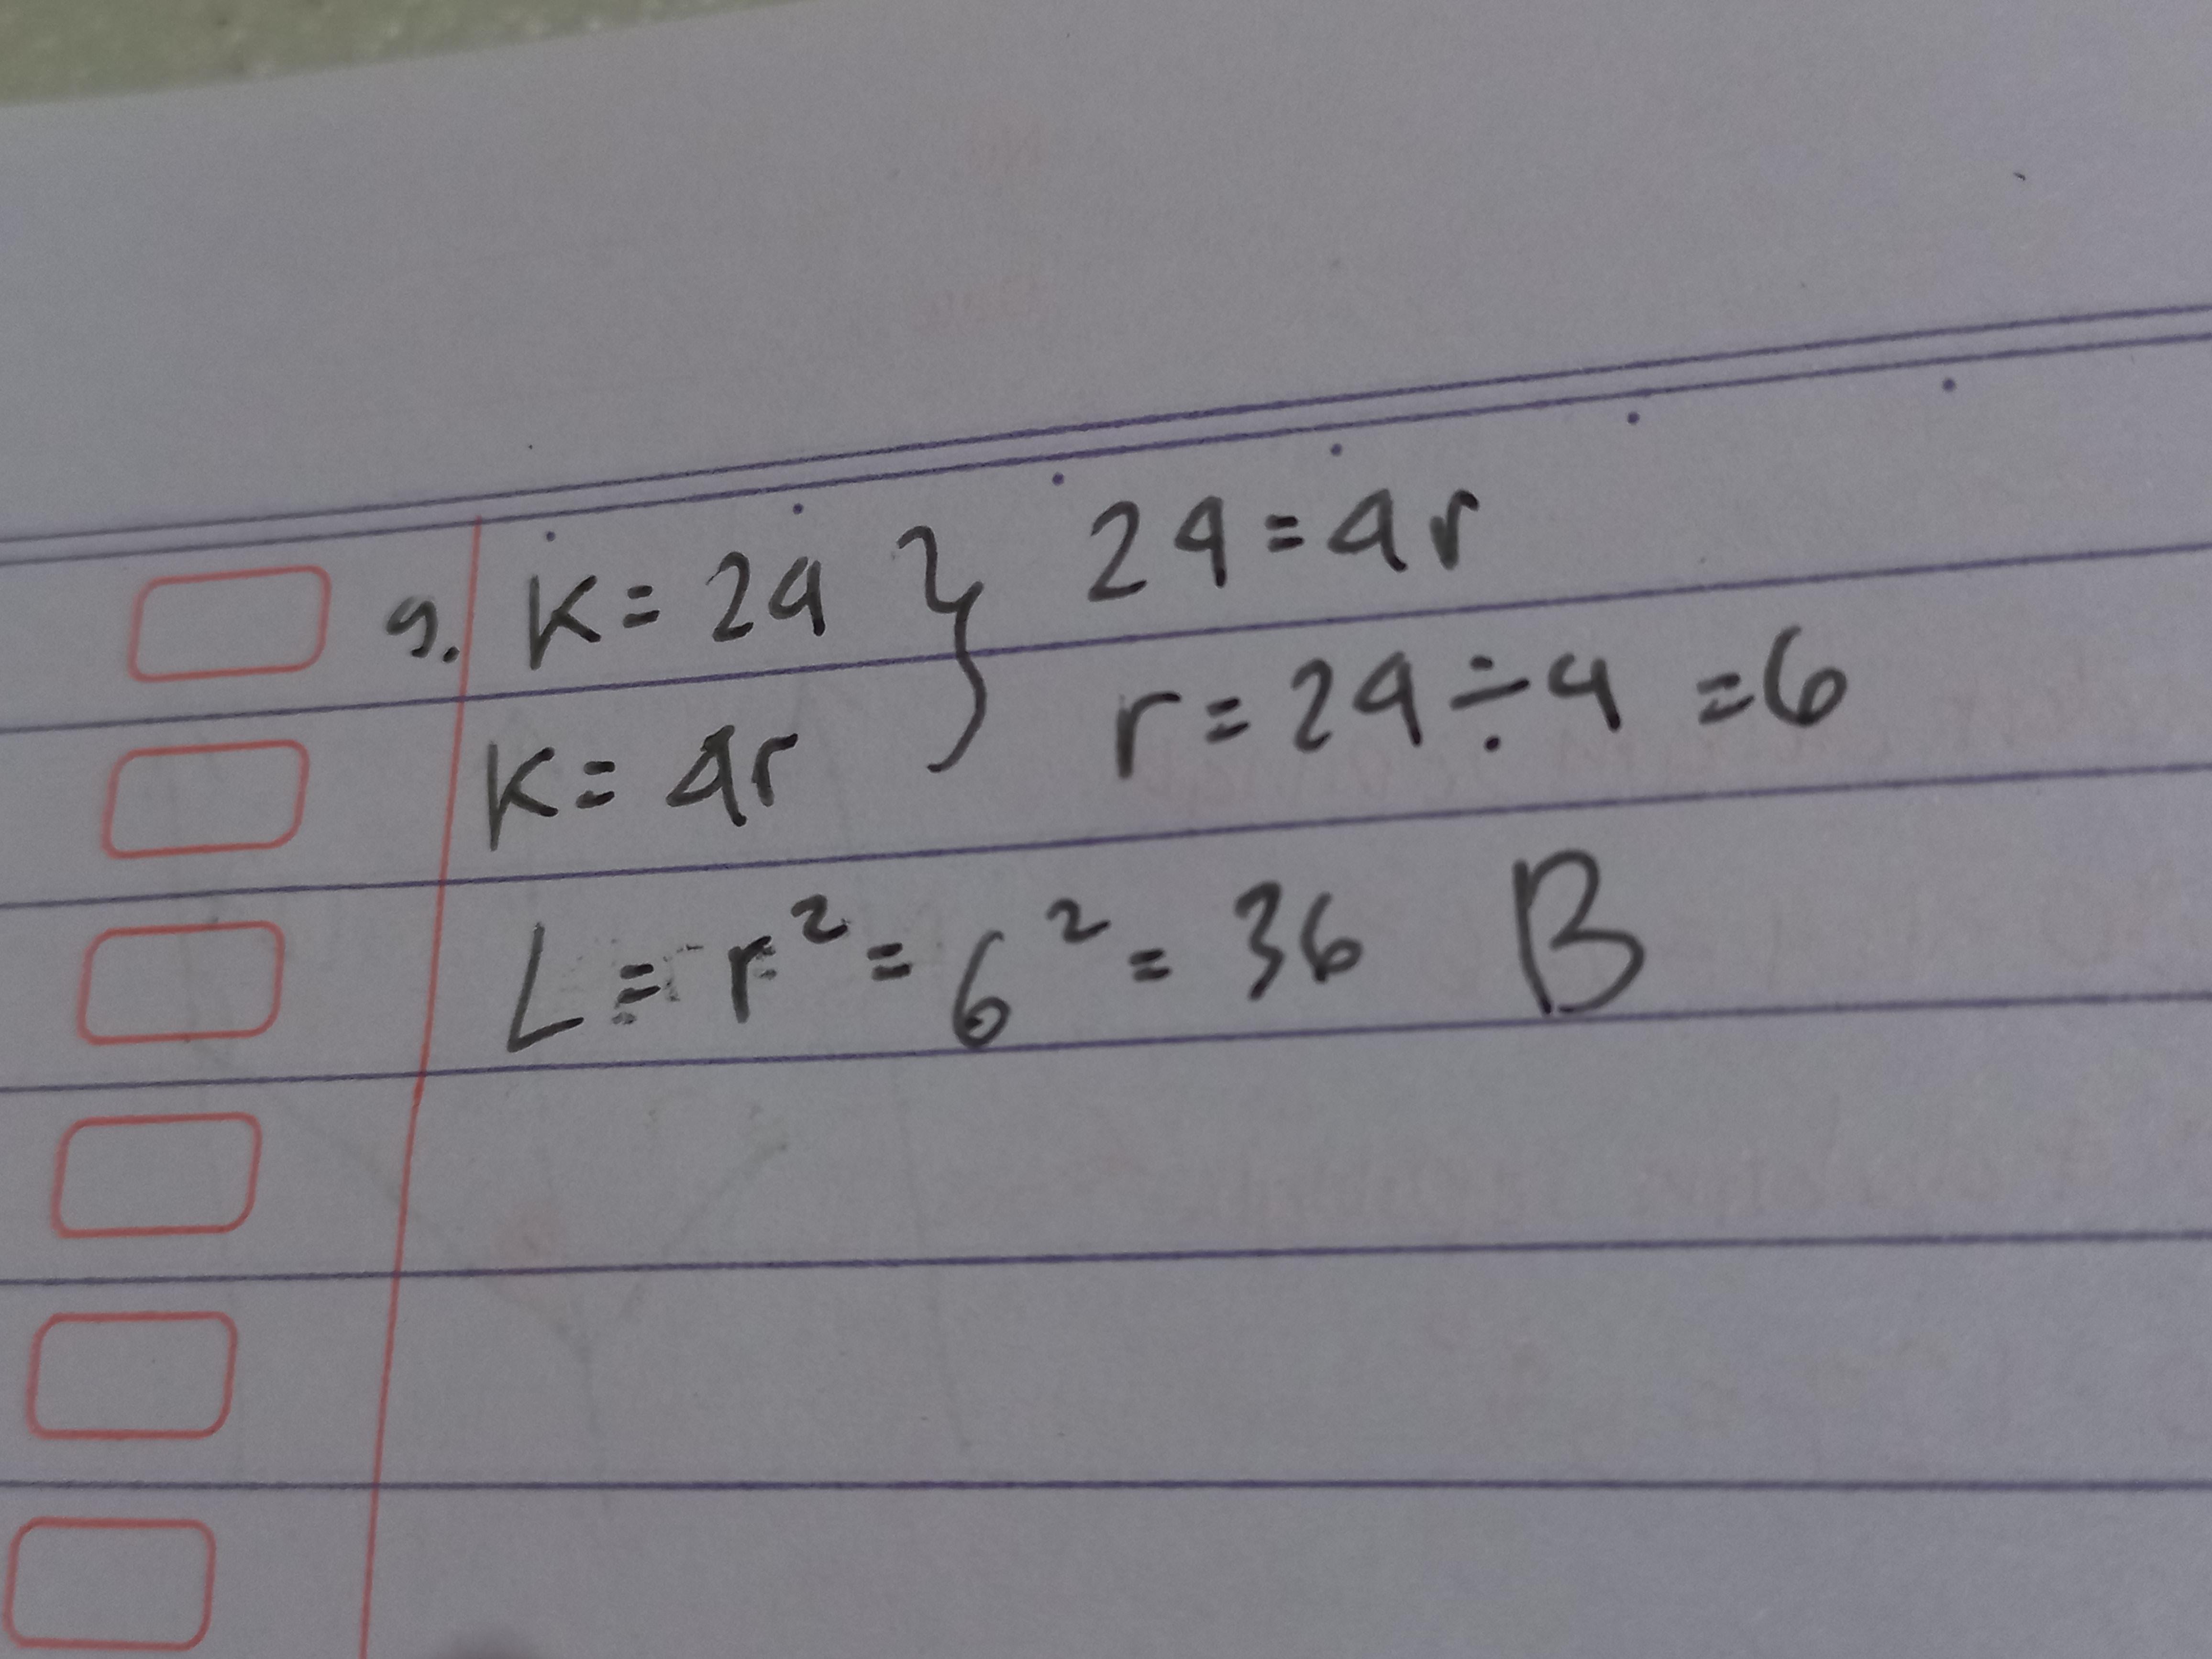 9. K = 24 } 24 = 4r
K = 4r r = 24 ÷ 4 = 6
L = r² = 6² = 36 B